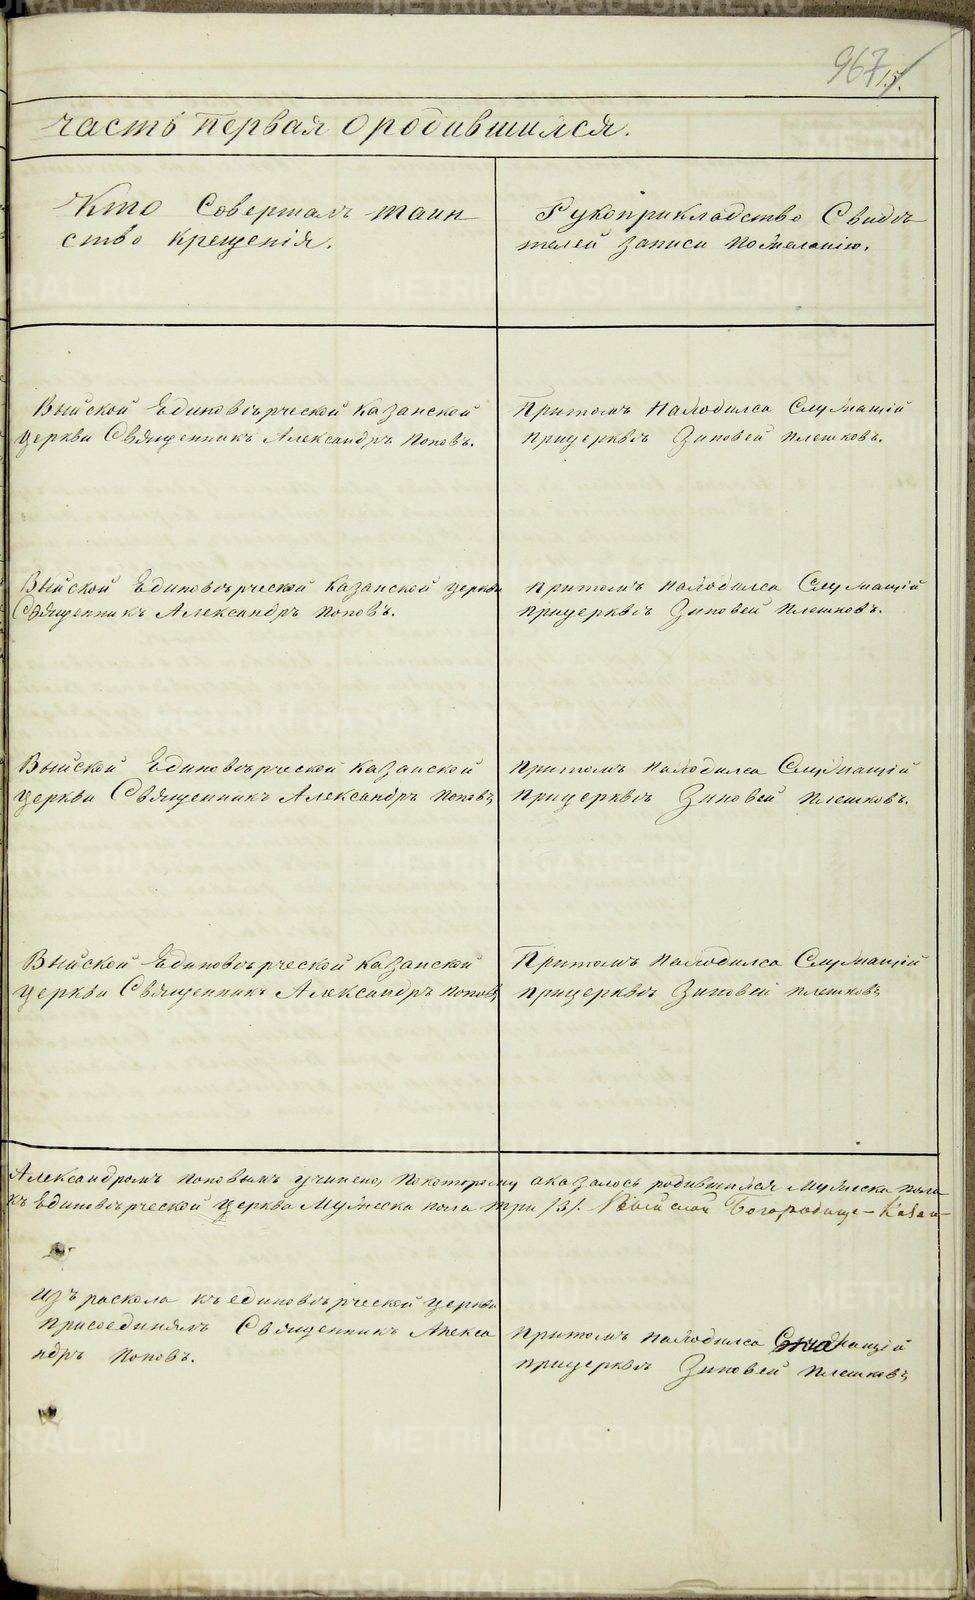 967
15.
Часть первая о родившихся.
Кто Совершалъ таин
ство крещенія.
Рукоприкладство Свидѣ
телей записи по желанію.
Выйской Единовѣрческой Казанской
церкви Священникъ Александръ Поповъ.
Притомъ находился Служащій
прицерквѣ Зиновей Плешковъ.
Выйской Единовѣрческой Казанской церкви
Священникъ Александръ Поповъ.
Притомъ находился Служащій
прицерквѣ Зиновей Плешковъ.
Выйской Единовѣрческой Казанской
церкви Священникъ Александръ Поповъ
Притомъ находился Служащій
прицерквѣ Зиновей Плешковъ.
Выйской Единовѣрческой Казанской
церкви Священникъ Александръ Поповъ
Притомъ находился Служащій
прицерквѣ Зиновей Плешковъ
Александромъ Поповымъ учинено, покоторому оказалось родившихся мужеска пола
къ Единовѣрческой церкви Мужеска пола три /3/. Выйской Богородице-Казан-
изъ раскола къ единовѣрческой церкви
присоединялъ Священникъ Алекса
ндръ Поповъ.
Притомъ находился Служащій
прицерквѣ Зиновей Плешковъ
METRIKI.GASO-URAL.RU